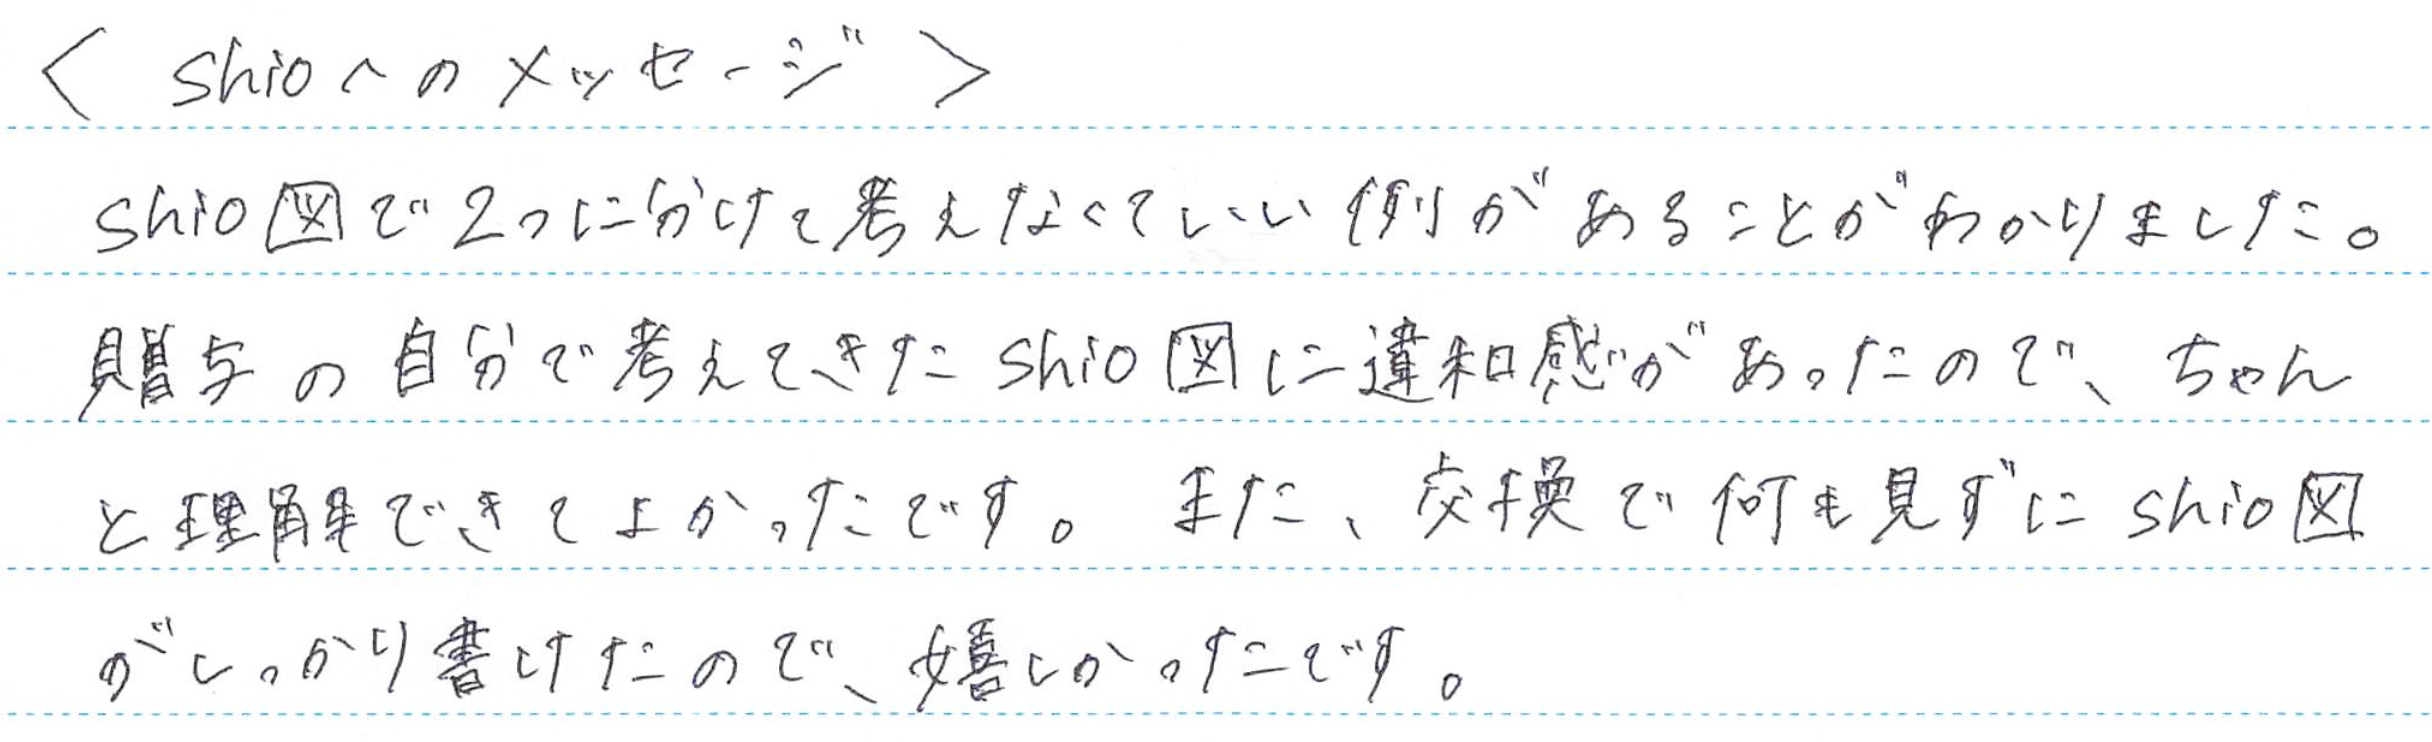 < shioへのメッセージ >
shio図で2つに分けて考えなくていい例があることがわかりました。
贈与の自分で考えてきたshio図に違和感があったので、ちゃん
と理解できてよかったです。また、交換で何も見ずにshio図
がしっかり書けたので、嬉しかったです。